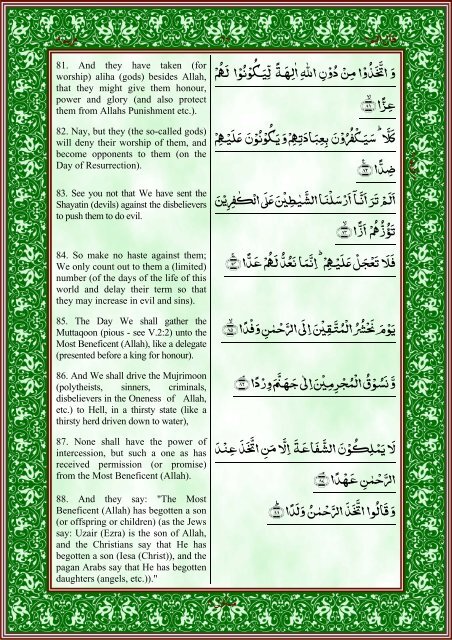 81. And they have taken (for
worship) aliha (gods) besides Allah,
that they might give them honour,
power and glory (and also protect
them from Allahs Punishment etc.).
وَ اتَّخَذُوْا مِنْ دُوْنِ اللّٰهِ اٰلِهَةً لِّيَكُوْنُوْا لَهُمْ
عِزًّا ۙ﴿۸۱﴾
82. Nay, but they (the so-called gods)
will deny their worship of them, and
become opponents to them (on the
Day of Resurrection).
كَلَّا ؕ سَيَكْفُرُوْنَ بِعِبَادَتِهِمْ وَ يَكُوْنُوْنَ عَلَيْهِمْ
ضِدًّا ﴿۸۲﴾
83. See you not that We have sent the
Shayatin (devils) against the disbelievers
to push them to do evil.
اَلَمْ تَرَ اَنَّاۤ اَرْسَلْنَا الشَّيٰطِيْنَ عَلَى الْكٰفِرِيْنَ
تَؤُزُّهُمْ اَزًّا ۙ﴿۸۳﴾
84. So make no haste against them;
We only count out to them a (limited)
number (of the days of the life of this
world and delay their term so that
they may increase in evil and sins).
فَلَا تَعْجَلْ عَلَيْهِمْ ؕ اِنَّمَا نَعُدُّ لَهُمْ عَدًّا ۚ﴿۸۴﴾
85. The Day We shall gather the
Muttaqoon (pious - see V.2:2) unto the
Most Beneficent (Allah), like a delegate
(presented before a king for honour).
يَوْمَ نَحْشُرُ الْمُتَّقِيْنَ اِلَى الرَّحْمٰنِ وَفْدًا ۙ﴿۸۵﴾
86. And We shall drive the Mujrimoon
(polytheists, sinners, criminals,
disbelievers in the Oneness of Allah,
etc.) to Hell, in a thirsty state (like a
thirsty herd driven down to water),
وَّ نَسُوْقُ الْمُجْرِمِيْنَ اِلٰى جَهَنَّمَ وِرْدًا ۘ﴿۸۶﴾
87. None shall have the power of
intercession, but such a one as has
received permission (or promise)
from the Most Beneficent (Allah).
لَا يَمْلِكُوْنَ الشَّفَاعَةَ اِلَّا مَنِ اتَّخَذَ عِنْدَ
الرَّحْمٰنِ عَهْدًا ۘ﴿۸۷﴾
88. And they say: "The Most
Beneficent (Allah) has begotten a son
(or offspring or children) (as the Jews
say: Uzair (Ezra) is the son of Allah,
and the Christians say that He has
begotten a son (Iesa (Christ)), and the
pagan Arabs say that He has begotten
daughters (angels, etc.))."
وَ قَالُوا اتَّخَذَ الرَّحْمٰنُ وَلَدًا ؕ﴿۸۸﴾